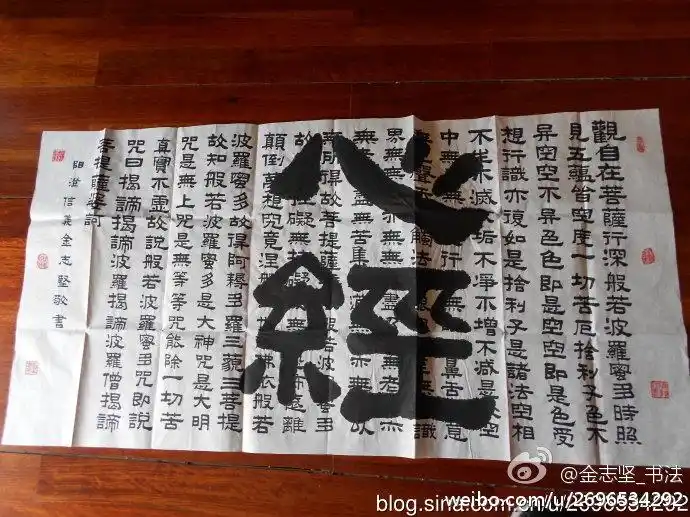 心經
觀自在菩薩行深般若波羅蜜多時照
見五蘊皆空度一切苦厄捨利子色不
异空空不异色色即是空空即是色受
想行識亦復如是捨利子是諸法空相
不生不滅不垢不淨不增不減是故空
中無行無鼻舌意
觸法無識
界無無亦無盡無老亦
無盡無苦滅無亦無故
無所得故菩提薩般若波多
故礙無礙無怖遠離
顛倒夢想究竟涅佛依般若
波羅蜜多故得阿耨多羅三藐三菩提
故知般若波羅蜜多是大神咒是大明
咒是無上咒是無等等咒能除一切苦
真實不虛故說般若波羅蜜多咒即說
咒曰揭諦揭諦波羅揭諦波羅僧揭諦
菩提薩婆訶
信義金志堅敬書
@金志坚_书法
weibo.com/u/2696534292
blog.sina.com.cn/u/2696534292